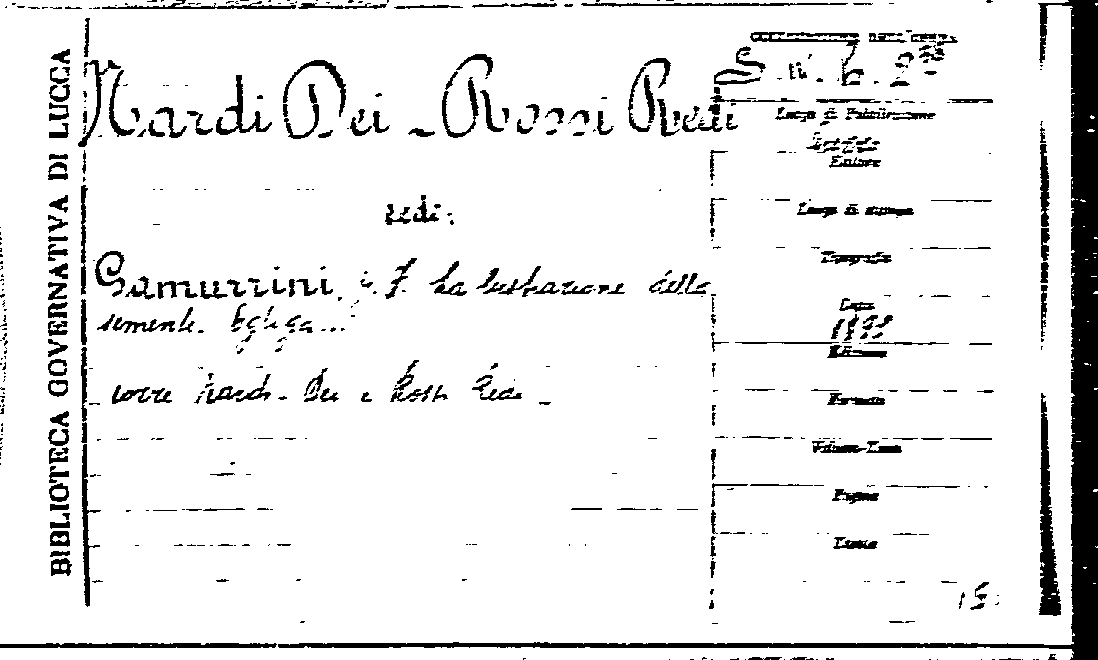 BIBLIOTECA GOVERNATIVA DI LUCCA
Nardi Dei - Rossi Redi
vedi:
Gamurrini, G. F. La lustrazione delle
sementi. Egloga...
Nozze Nardi-Dei e Rossi Redi -
Luogo di Pubblicazione
Editore
Luogo di stampa
Tipografia
Data
Edizione
Formato
Volume-Tomo
Pagine